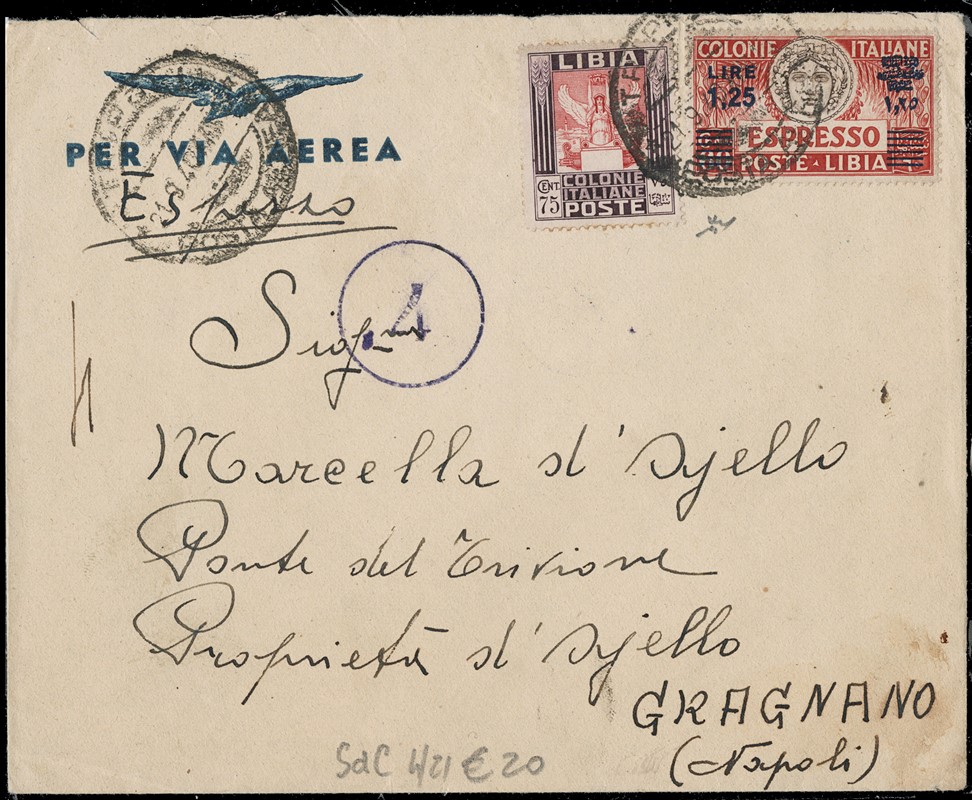 PER VIA AEREA
Espresso
LIBIA
CENT. 75
COLONIE
ITALIANE
POSTE
COLONIE ITALIANE
LIRE
1,25
١،٢٥
ESPRESSO
POSTE LIBIA
4
Sig.na
Marcella d'Ajello
Ponte del Trivione
Proprietà d'Ajello
GRAGNANO
(Napoli)
SdC 4/21 € 20